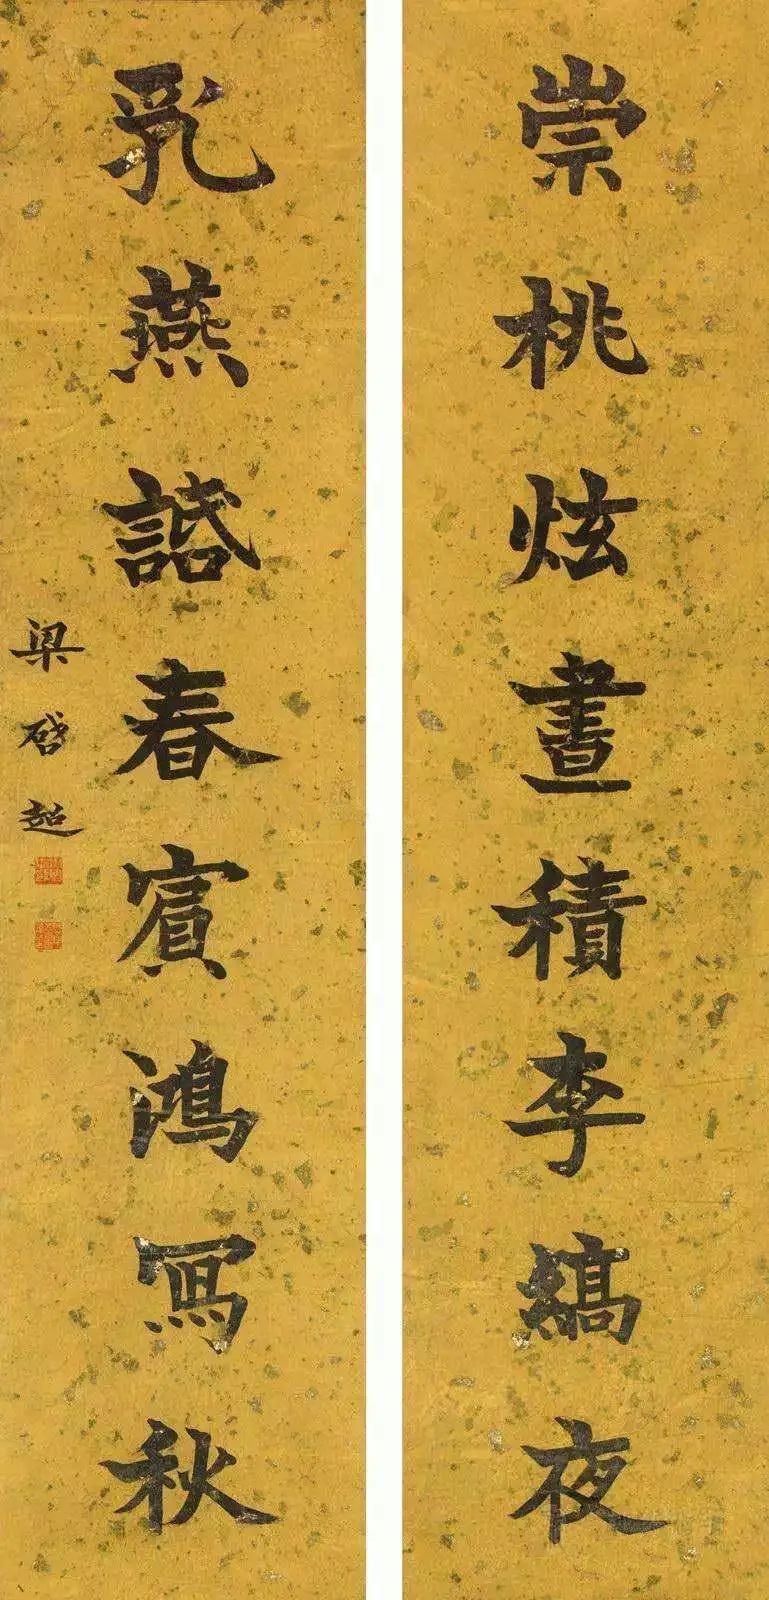 崇桃炫晝積李縞夜
乳燕話春賓鴻寫秋
梁啟超